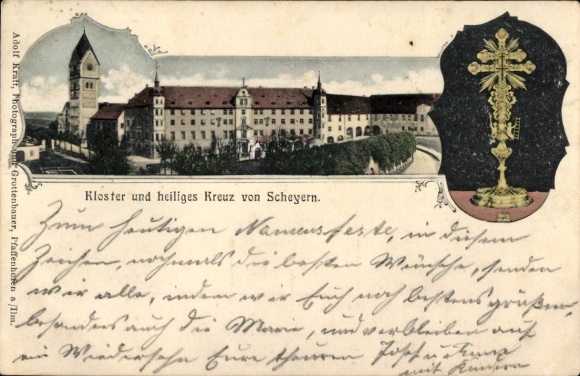 Adolf Kraft, Photograph und Grottenbauer, Pfaffenhofen a/Ilm.
Kloster und heiliges Kreuz von Scheyern.
Zum heutigen Namensfeste, in diesem
Zeichen, nochmals die besten Wünsche, senden
wir alle, indem wir Euch noch bestens grüßen,
besonders auch die Marie, und verbleiben auf
ein Wiedersehn Eure theuren Josef u.
mit